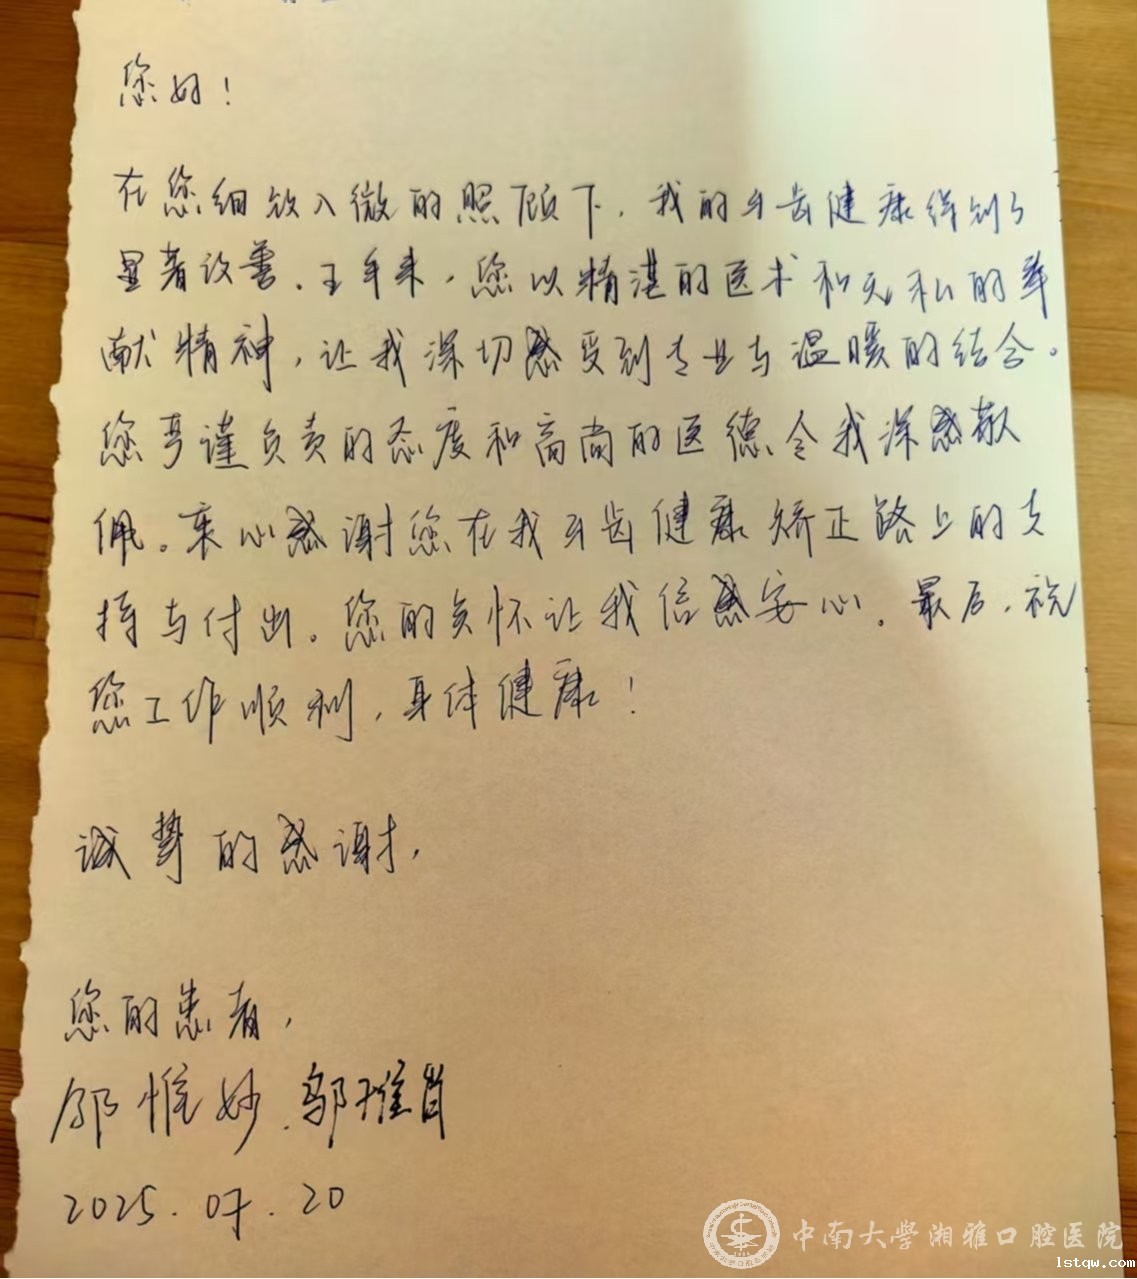 您好!
在您细致入微的照顾下,我的牙齿健康得到了
显著改善.五年来,您以精湛的医术和无私的奉
献精神,让我深切感受到专业与温暖的结合。
您严谨负责的态度和高尚的医德令我深感敬
佩。衷心感谢您在我牙齿健康矫正路上的支
持与付出。您的关怀让我倍感安心.最后,祝
您工作顺利,身体健康!
诚挚的感谢,
您的患者,
邬惟妙.邬惟肖
2025.07.20
中南大学湘雅口腔医院
lstqw.com